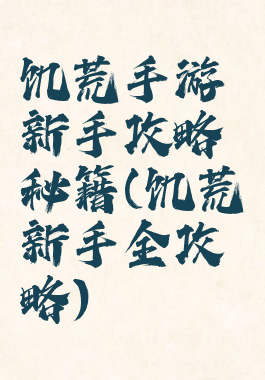 饥荒手游
新手攻略
秘籍(饥荒
新手全攻
略)